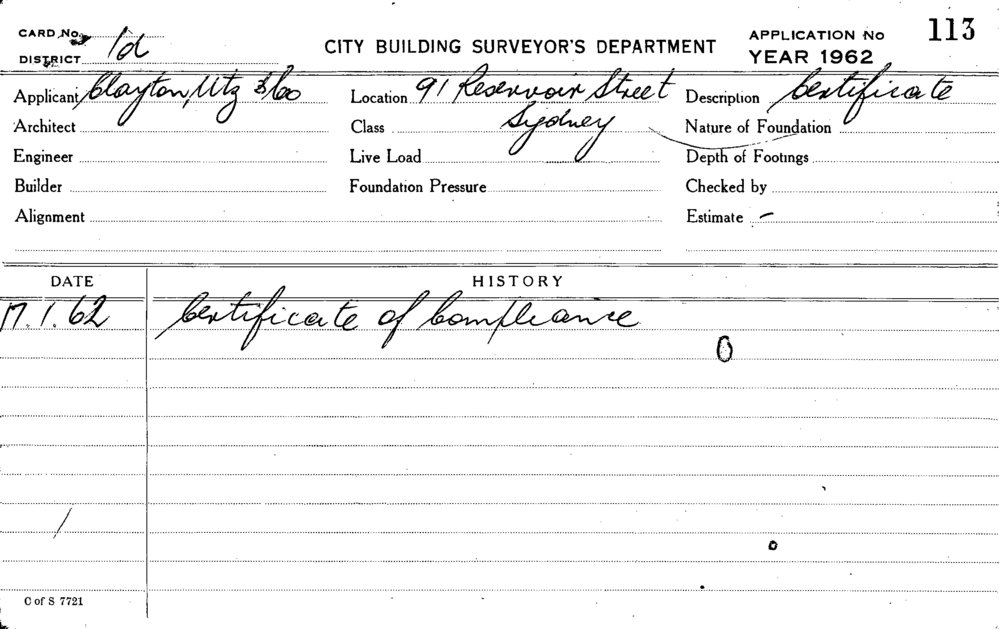 CARD No.
113
APPLICATION No
1d
CITY BUILDING SURVEYOR'S DEPARTMENT
DISTRICT
YEAR 1962
Applicant Clayton, Utz & Co Location 91 Reservoir Street Description Certificate
Architect Class Sydney Nature of Foundation
Engineer Live Load Depth of Footings
Builder Foundation Pressure Checked by
Alignment Estimate –
DATE HISTORY
17.1.62 Certificate of Compliance
C of S 7721